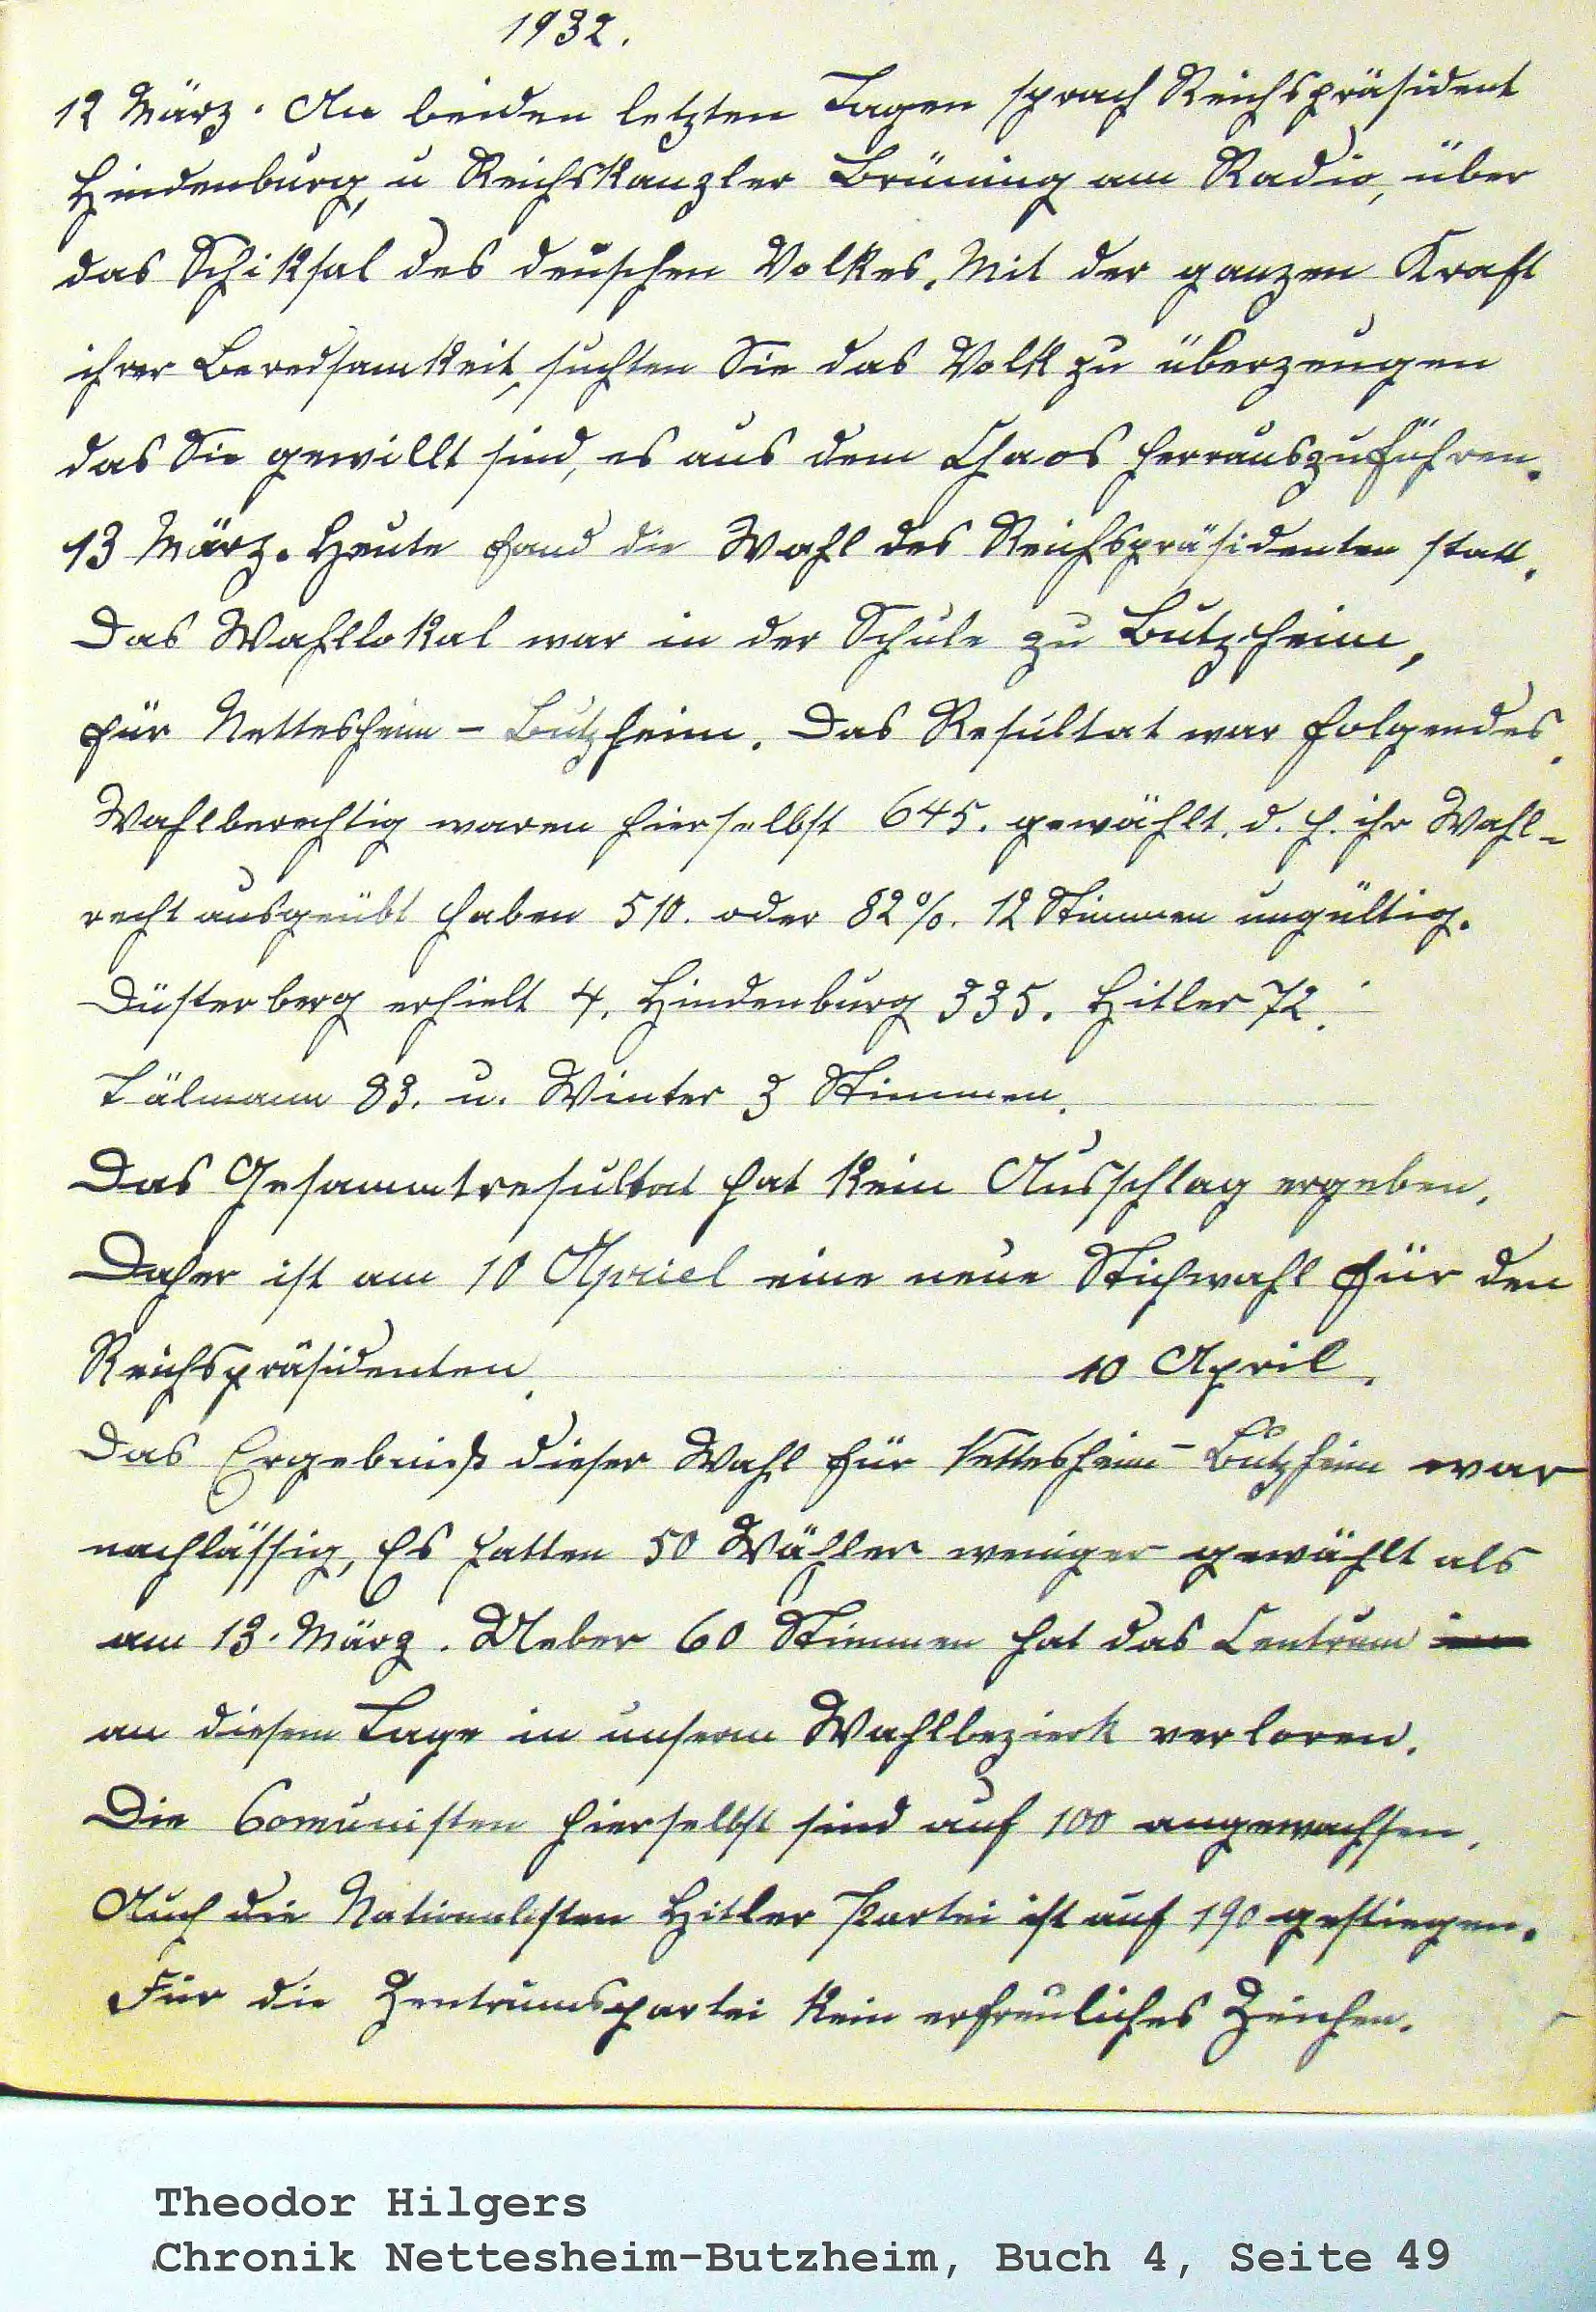 1932.
12 März. An beiden letzten Tagen sprach Reichspräsident
Hindenburg, u Reichskanzler Brüning am Radio, über
das Schiksal des deuschen Volkes. Mit der ganzen Kraft
ihrer Beredsamkeit, suchten Sie das Volk zu überzeugen
das Sie gewillt sind, es aus dem Chaos herrauszuführen.
13 März. Heute fand die Wahl des Reichspräsidenten statt.
Das Wahllokal war in der Schule zu Butzheim,
für Nettesheim - Butzheim. Das Resultat war folgendes.
Wahlberechtig waren hierselbst 645. gewählt. d. h. ihr Wahl-
recht ausgeübt haben 510. oder 82%. 12 Stimmen ungültig.
Düsterberg erhielt 4. Hindenburg 335. Hitler 72.
Tälmann 83. u. Winter 3 Stimmen.
Das Gesammtresultat hat kein Ausschlag ergeben.
Daher ist am 10 Apriel eine neue Stichwahl für den
Reichspräsidenten. 10 April.
Das Ergebniß dieser Wahl für Nettesheim - Butzheim war
nachlässig, Es hatten 50 Wähler weniger gewählt als
am 13. März. Ueber 60 Stimmen hat das Centrum
an diesem Tage in unserm Wahlbezierk verloren.
Die Comunisten hierselbst sind auf 100 angewachsen.
Auch die Nationalisten Hitler Partei ist auf 190 gestiegen.
Für die Zentrumspartei kein erfreuliches Zeichen.
Theodor Hilgers
Chronik Nettesheim-Butzheim, Buch 4, Seite 49